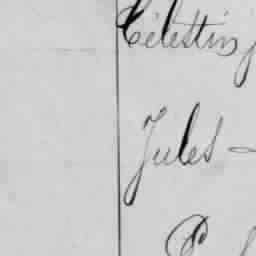 Célestin
Jules -